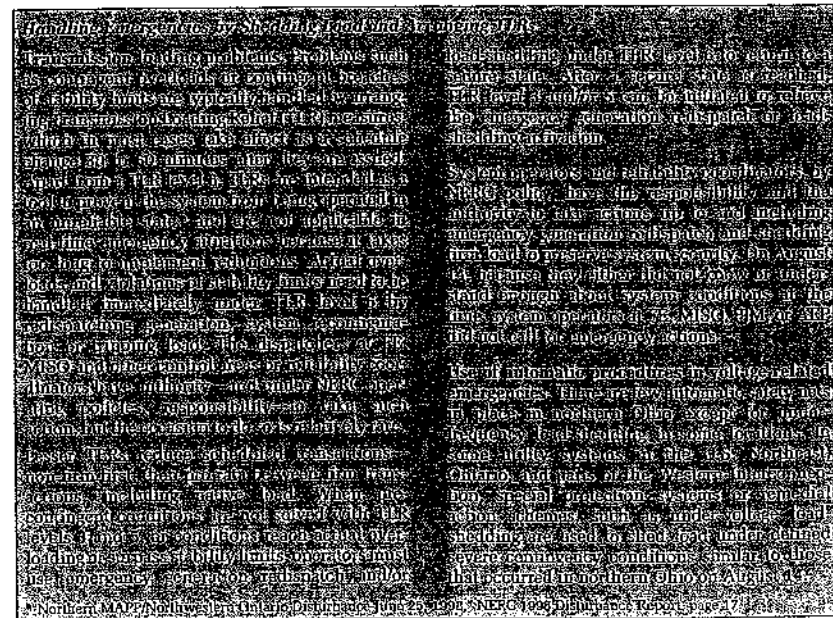 Handling Emergencies by Shedding Load and Arranging TLRs
Transmission loading problems. Problems such
as contingent overloads or contingent breaches
of stability limits are typically handled by arrang-
ing Transmission Loading Relief (TLR) measures,
which in most cases take effect as a schedule
change 30 to 60 minutes after they are issued.
Apart from a TLR level 6, TLRs are intended as a
tool to prevent the system from being operated in
an unreliable state, and are not applicable in
real-time emergency situations because it takes
too long to implement reductions. Actual over-
loads and violations of stability limits need to be
handled immediately under TLR level 6 by
redispatching generation, system reconfigura-
tion or tripping load. The dispatchers at FE,
MISO and other control areas or reliability coor-
dinators have authority—and under NERC oper-
ating policies, responsibility—to take such
action, but the occasion to do so is relatively rare.
Lesser TLRs reduce scheduled transactions—
non-firm first, then pro-rata between firm trans-
actions, including native load. When pre-
contingent conditions are not solved with TLR
levels 3 and 5, or conditions reach actual over-
loading or surpass stability limits, operators must
use emergency generation redispatch and/or
load-shedding under TLR level 6 to return to a
secure state. After a secure state is reached,
TLR level 3 and/or 5 can be initiated to relieve
the emergency generation redispatch or load-
shedding activation.
System operators and reliability coordinators, by
NERC policy, have the responsibility and the
authority to take actions up to and including
emergency generation redispatch and shedding
firm load to preserve system security. On August
14, because they either did not know or under-
stand enough about system conditions at the
time, system operators at FE, MISO, PJM, or AEP
did not call for emergency actions.
Use of automatic procedures in voltage-related
emergencies. There are few automatic
in place in northern Ohio except for under-
frequency load-shedding in some locations. In
some utility systems in the U.S. Northeast,
Ontario, and parts of the Western Interconnec-
tion, special protection systems or remedial
action schemes, such as under-voltage load-
shedding are used to shed load under defined
severe contingency conditions similar to those
that occurred in northern Ohio on August 14.
"Northern MAPP/Northwestern Ontario Disturbance-June 25, 1998," NERC 1998 Disturbance Report, page 17.